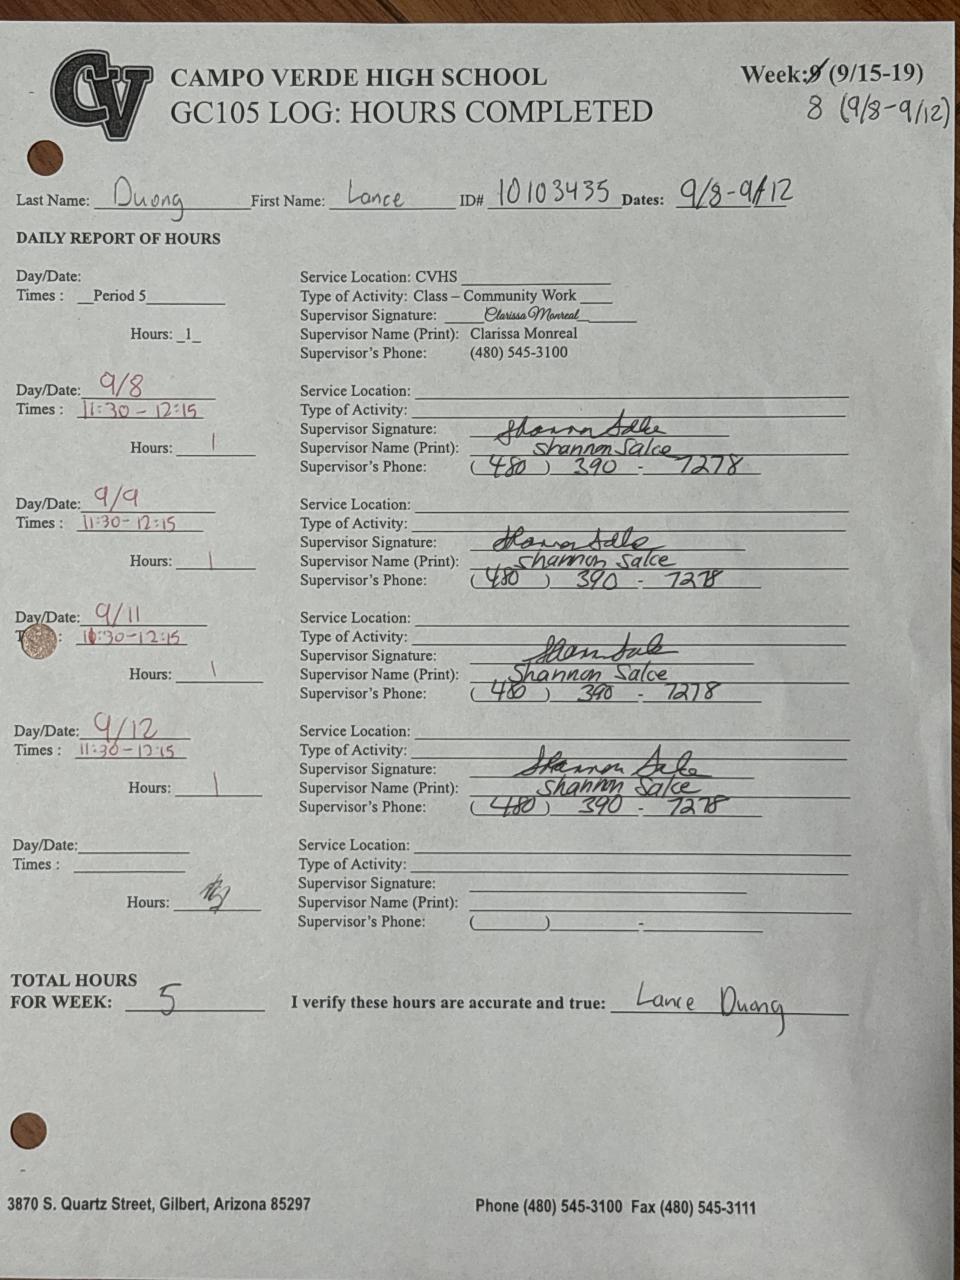 CV
CAMPO VERDE HIGH SCHOOL
GC105 LOG: HOURS COMPLETED
Week:9 (9/15-19)
8 (9/8-9/12)
Last Name: Duong First Name: Lance ID# 10103435 Dates: 9/8-9/12
DAILY REPORT OF HOURS
Day/Date:
Times : Period 5
Hours: 1
Service Location: CVHS
Type of Activity: Class – Community Work
Supervisor Signature: Clarissa Monreal
Supervisor Name (Print): Clarissa Monreal
Supervisor's Phone: (480) 545-3100
Day/Date: 9/8
Times : 11:30 - 12:15
Hours: 1
Service Location:
Type of Activity:
Supervisor Signature: Shannon Salce
Supervisor Name (Print): Shannon Salce
Supervisor's Phone: (480) 390 - 7278
Day/Date: 9/9
Times : 11:30- 12:15
Hours: 1
Service Location:
Type of Activity:
Supervisor Signature: Shannon Salce
Supervisor Name (Print): Shannon Salce
Supervisor's Phone: (480) 390 - 7278
Day/Date: 9/11
T :  11:30-12:15
Hours: 1
Service Location:
Type of Activity:
Supervisor Signature: Shannon Salce
Supervisor Name (Print): Shannon Salce
Supervisor's Phone: (480) 390 - 7278
Day/Date: 9/12
Times : 11:30-12:15
Hours: 1
Service Location:
Type of Activity:
Supervisor Signature: Shannon Salce
Supervisor Name (Print): Shannon Salce
Supervisor's Phone: (480) 390 - 7278
Day/Date:
Times :
Hours:
Service Location:
Type of Activity:
Supervisor Signature:
Supervisor Name (Print):
Supervisor's Phone: ( ) -
TOTAL HOURS
FOR WEEK: 5 I verify these hours are accurate and true: Lance Duong
3870 S. Quartz Street, Gilbert, Arizona 85297 Phone (480) 545-3100 Fax (480) 545-3111